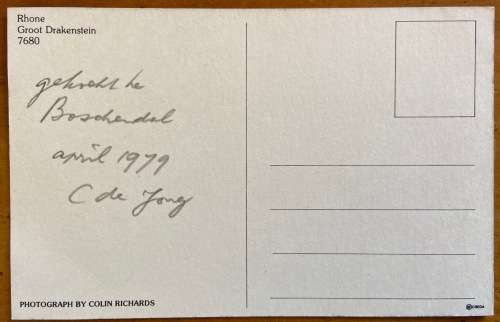 Rhone
Groot Drakenstein
7680
gekocht te
Boschendal
april 1979
C de Jong
PHOTOGRAPH BY COLIN RICHARDS